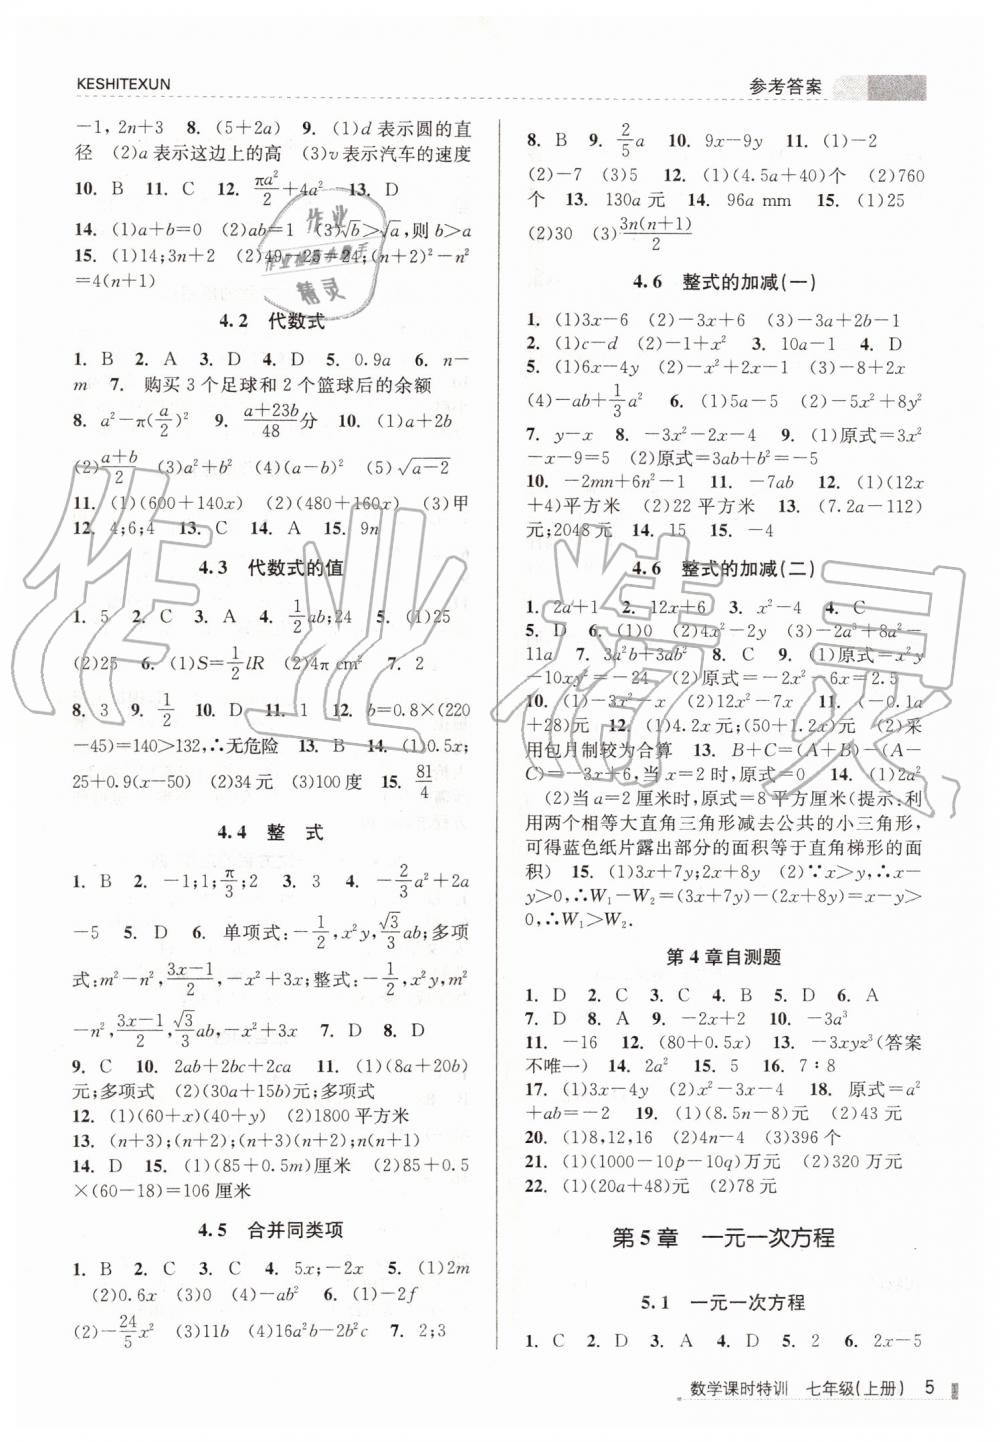 KESHITEXUN
参考答案
-1,2n+3 8. (5+2a) 9. (1)d 表示圆的直
径 (2)a 表示这边上的高 (3)v 表示汽车的速度
10. B 11. C 12. πa²/2+4a² 13. D
14. (1)a+b=0 (2)ab=1 (3)√b>√a,则 b>a
15. (1)14;3n+2 (2)49-25=24;(n+2)²-n²
=4(n+1)
4.2 代数式
1. B 2. A 3. D 4. D 5. 0.9a 6. n-
m 7. 购买 3 个足球和 2 个篮球后的余额
8. a²-π(a/2)² 9. (a+23b)/48分 10. (1)a+2b
(2)(a+b)/2 (3)a²+b² (4)(a-b)² (5)√(a-2)
11. (1)(600+140x) (2)(480+160x) (3)甲
12. 4;6;4 13. C 14. A 15. 9n
4.3 代数式的值
1. 5 2. C 3. A 4. 1/2ab;24 5. (1)25
(2)25 6. (1)S=1/2lR (2)4π cm² 7. 2
8. 3 9. 1/2 10. D 11. 1 12. b=0.8×(220
-45)=140>132,∴无危险 13. B 14. (1)0.5x;
25+0.9(x-50) (2)34 元 (3)100 度 15. 81/4
4.4 整 式
1. B 2. -1;1;π/3;2 3. 3 4. -2/3a²+2a
-5 5. D 6. 单项式:-1/2,x²y,√3/3ab;多项
式:m²-n²,(3x-1)/2,-x²+3x;整式:-1/2,x²y,m²
-n²,(3x-1)/2,√3/3ab,-x²+3x 7. D 8. D
9. C 10. 2ab+2bc+2ca 11. (1)(8a+20b)
元;多项式 (2)(30a+15b)元;多项式
12. (1)(60+x)(40+y) (2)1800 平方米
13. (n+3);(n+2);(n+3)(n+2);n(n+1)
14. D 15. (1)(85+0.5m)厘米 (2)85+0.5
×(60-18)=106 厘米
4.5 合并同类项
1. B 2. C 3. C 4. 5x;-2x 5. (1)2m
(2)0.6x (3)0 (4)-ab² 6. (1)-2f
(2)-24/5x² (3)11b (4)16a²b-2b²c 7. 2;3
8. B 9. 2/5a 10. 9x-9y 11. (1)-2
(2)-7 (3)5 12. (1)(4.5a+40)个 (2)760
个 13. 130a 元 14. 96a mm 15. (1)25
(2)30 (3)3n(n+1)/2
4.6 整式的加减(一)
1. (1)3x-6 (2)-3x+6 (3)-3a+2b-1
2. (1)c-d (2)-1+x² 3. 10a-1 4. D
5. (1)6x-4y (2)-x²+2x-1 (3)-8+2x
(4)-ab+1/3a² 6. (1)5a-5 (2)-5x²+8y²
7. y-x 8. -3x²-2x-4 9. (1)原式=3x²
-x-9=5 (2)原式=3ab+b²=-5
10. -2mn+6n²-1 11. -7ab 12. (1)(12x
+4)平方米 (2)22 平方米 13. (7.2a-112)
元;2048 元 14. 15 15. -4
4.6 整式的加减(二)
1. 2a+1 2. 12x+6 3. x²-4 4. C
5. D 6. (1)0 (2)4x²-2y (3)-2a³+8a²-
11a 7. 3a²b+3ab² 8. C 9. (1)原式=x²y
-10xy²=-24 (2)原式=-2x²-6x=2.5
10. (1)-3x² (2)12x²-7x 11. (-0.1a
+28)元 12. (1)4.2x 元;(50+1.2x)元 (2)采
用包月制较为合算 13. B+C=(A+B)-(A-
C)=-3x+6,当 x=2时,原式=0 14. (1)2a²
(2)当 a=2 厘米时,原式=8 平方厘米(提示:利
用两个相等大直角三角形减去公共的小三角形,
可得蓝色纸片露出部分的面积等于直角梯形的面
积) 15. (1)3x+7y;2x+8y (2)∵x>y,∴x-
y>0,∴W₁-W₂=(3x+7y)-(2x+8y)=x-y>
0,∴W₁>W₂.
第 4 章自测题
1. D 2. C 3. C 4. B 5. D 6. A
7. D 8. A 9. -2x+2 10. -3a³
11. -16 12. (80+0.5x) 13. -3xyz³(答案
不唯一) 14. 2a² 15. 5 16. 7∶8
17. (1)3x-4y (2)x²-3x-4 18. 原式=a²
+ab=-2 19. (1)(8.5n-8) (2)43 元
20. (1)8,12,16 (2)4n-4 (3)396 个
21. (1)(1000-10p-10q)万元 (2)320 万元
22. (1)(20a+48)元 (2)78 元
第 5 章 一元一次方程
5.1 一元一次方程
1. C 2. D 3. A 4. D 5. 2 6. 2x-5
数学课时特训 七年级(上册) 5
作业
精灵
作业精灵